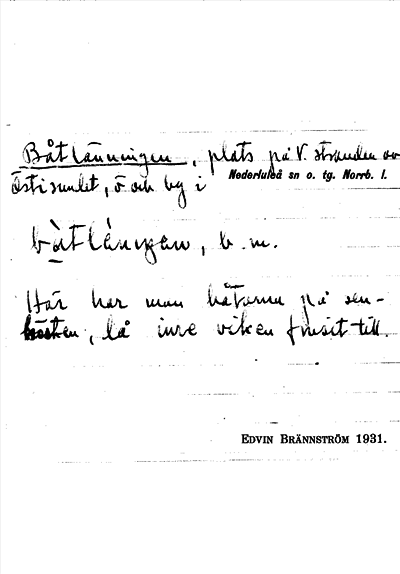 Båtlänningen, plats på V. stranden av
Östisundet, ö och by i Nederluleå sn o. tg. Norrb. l.
båtlä̀ningen, b. m.
Här har man båtarna på sen-
hösten, då inre viken frusit till.
EDVIN BRÄNNSTRÖM 1931.